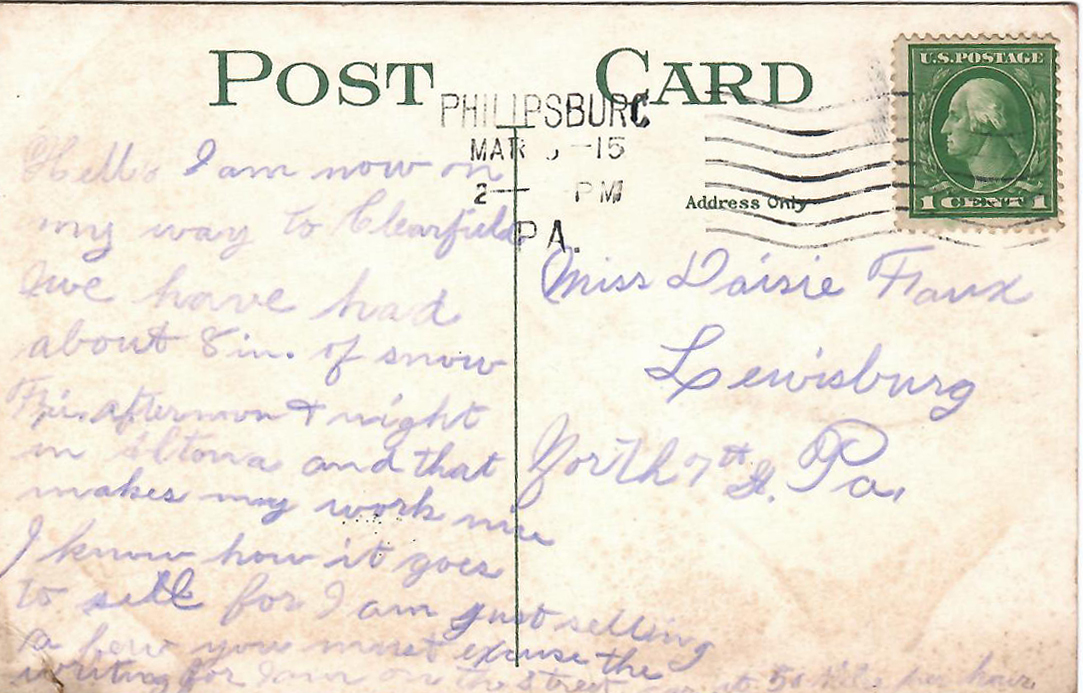 POST CARD
U.S. POSTAGE
1 CENT 1
PHILIPSBURG
MAR 5-15
2- PM
PA.
Address Only
Hello I am now on
my way to Clearfield
we have had
about 8 in. of snow
Fri. afternoon & night
in altona and that
makes my work nice
I know how it goes
to sell for I am just selling
a few you must excuse the
writing for I am on the street car at 50 miles per hour.
Miss Daisie Faux
Lewisburg
North 7th St. Pa.